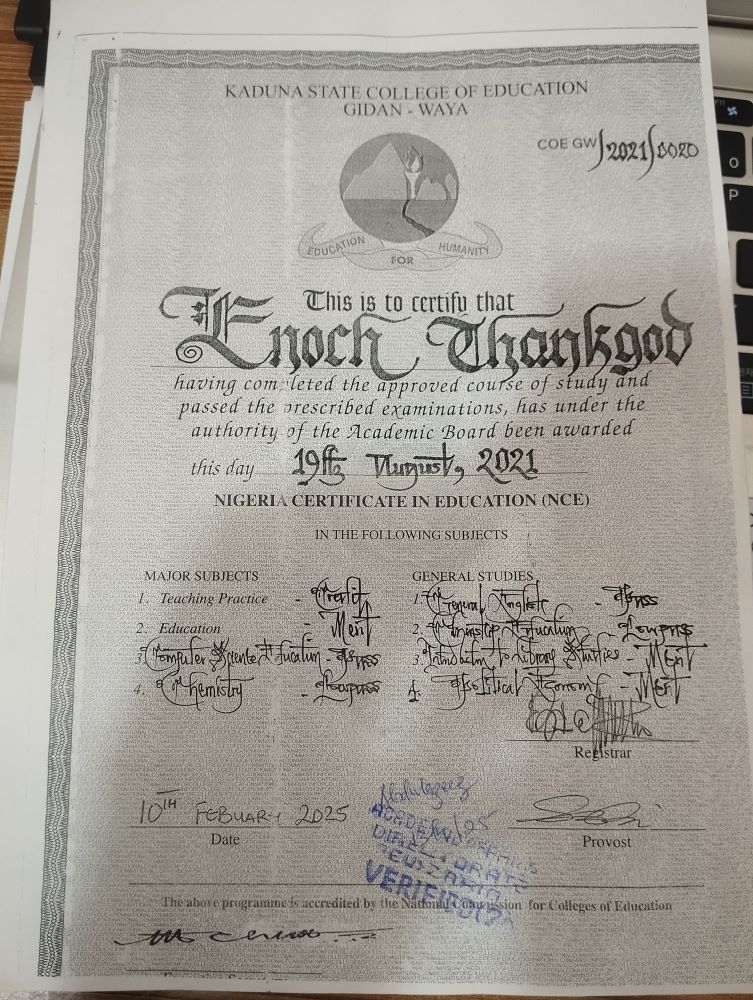 KADUNA STATE COLLEGE OF EDUCATION
GIDAN - WAYA
COE GW/2021/0020
EDUCATION FOR HUMANITY
This is to certify that
Enoch Thankgod
having completed the approved course of study and
passed the prescribed examinations, has under the
authority of the Academic Board been awarded
this day 19th August, 2021
NIGERIA CERTIFICATE IN EDUCATION (NCE)
IN THE FOLLOWING SUBJECTS
MAJOR SUBJECTS
1. Teaching Practice - Credit
2. Education - Merit
3. Computer Science Education - Pass
4. Chemistry - Lowpass
GENERAL STUDIES
1. General English - Pass
2. Education - Lowpass
3. Introduction to Library Studies - Merit
4. Political Economy - Merit
Registrar
10TH FEBUARY 2025
Date
Provost
ACADEMIC
VERIFIED
The above programme is accredited by the National Commission for Colleges of Education